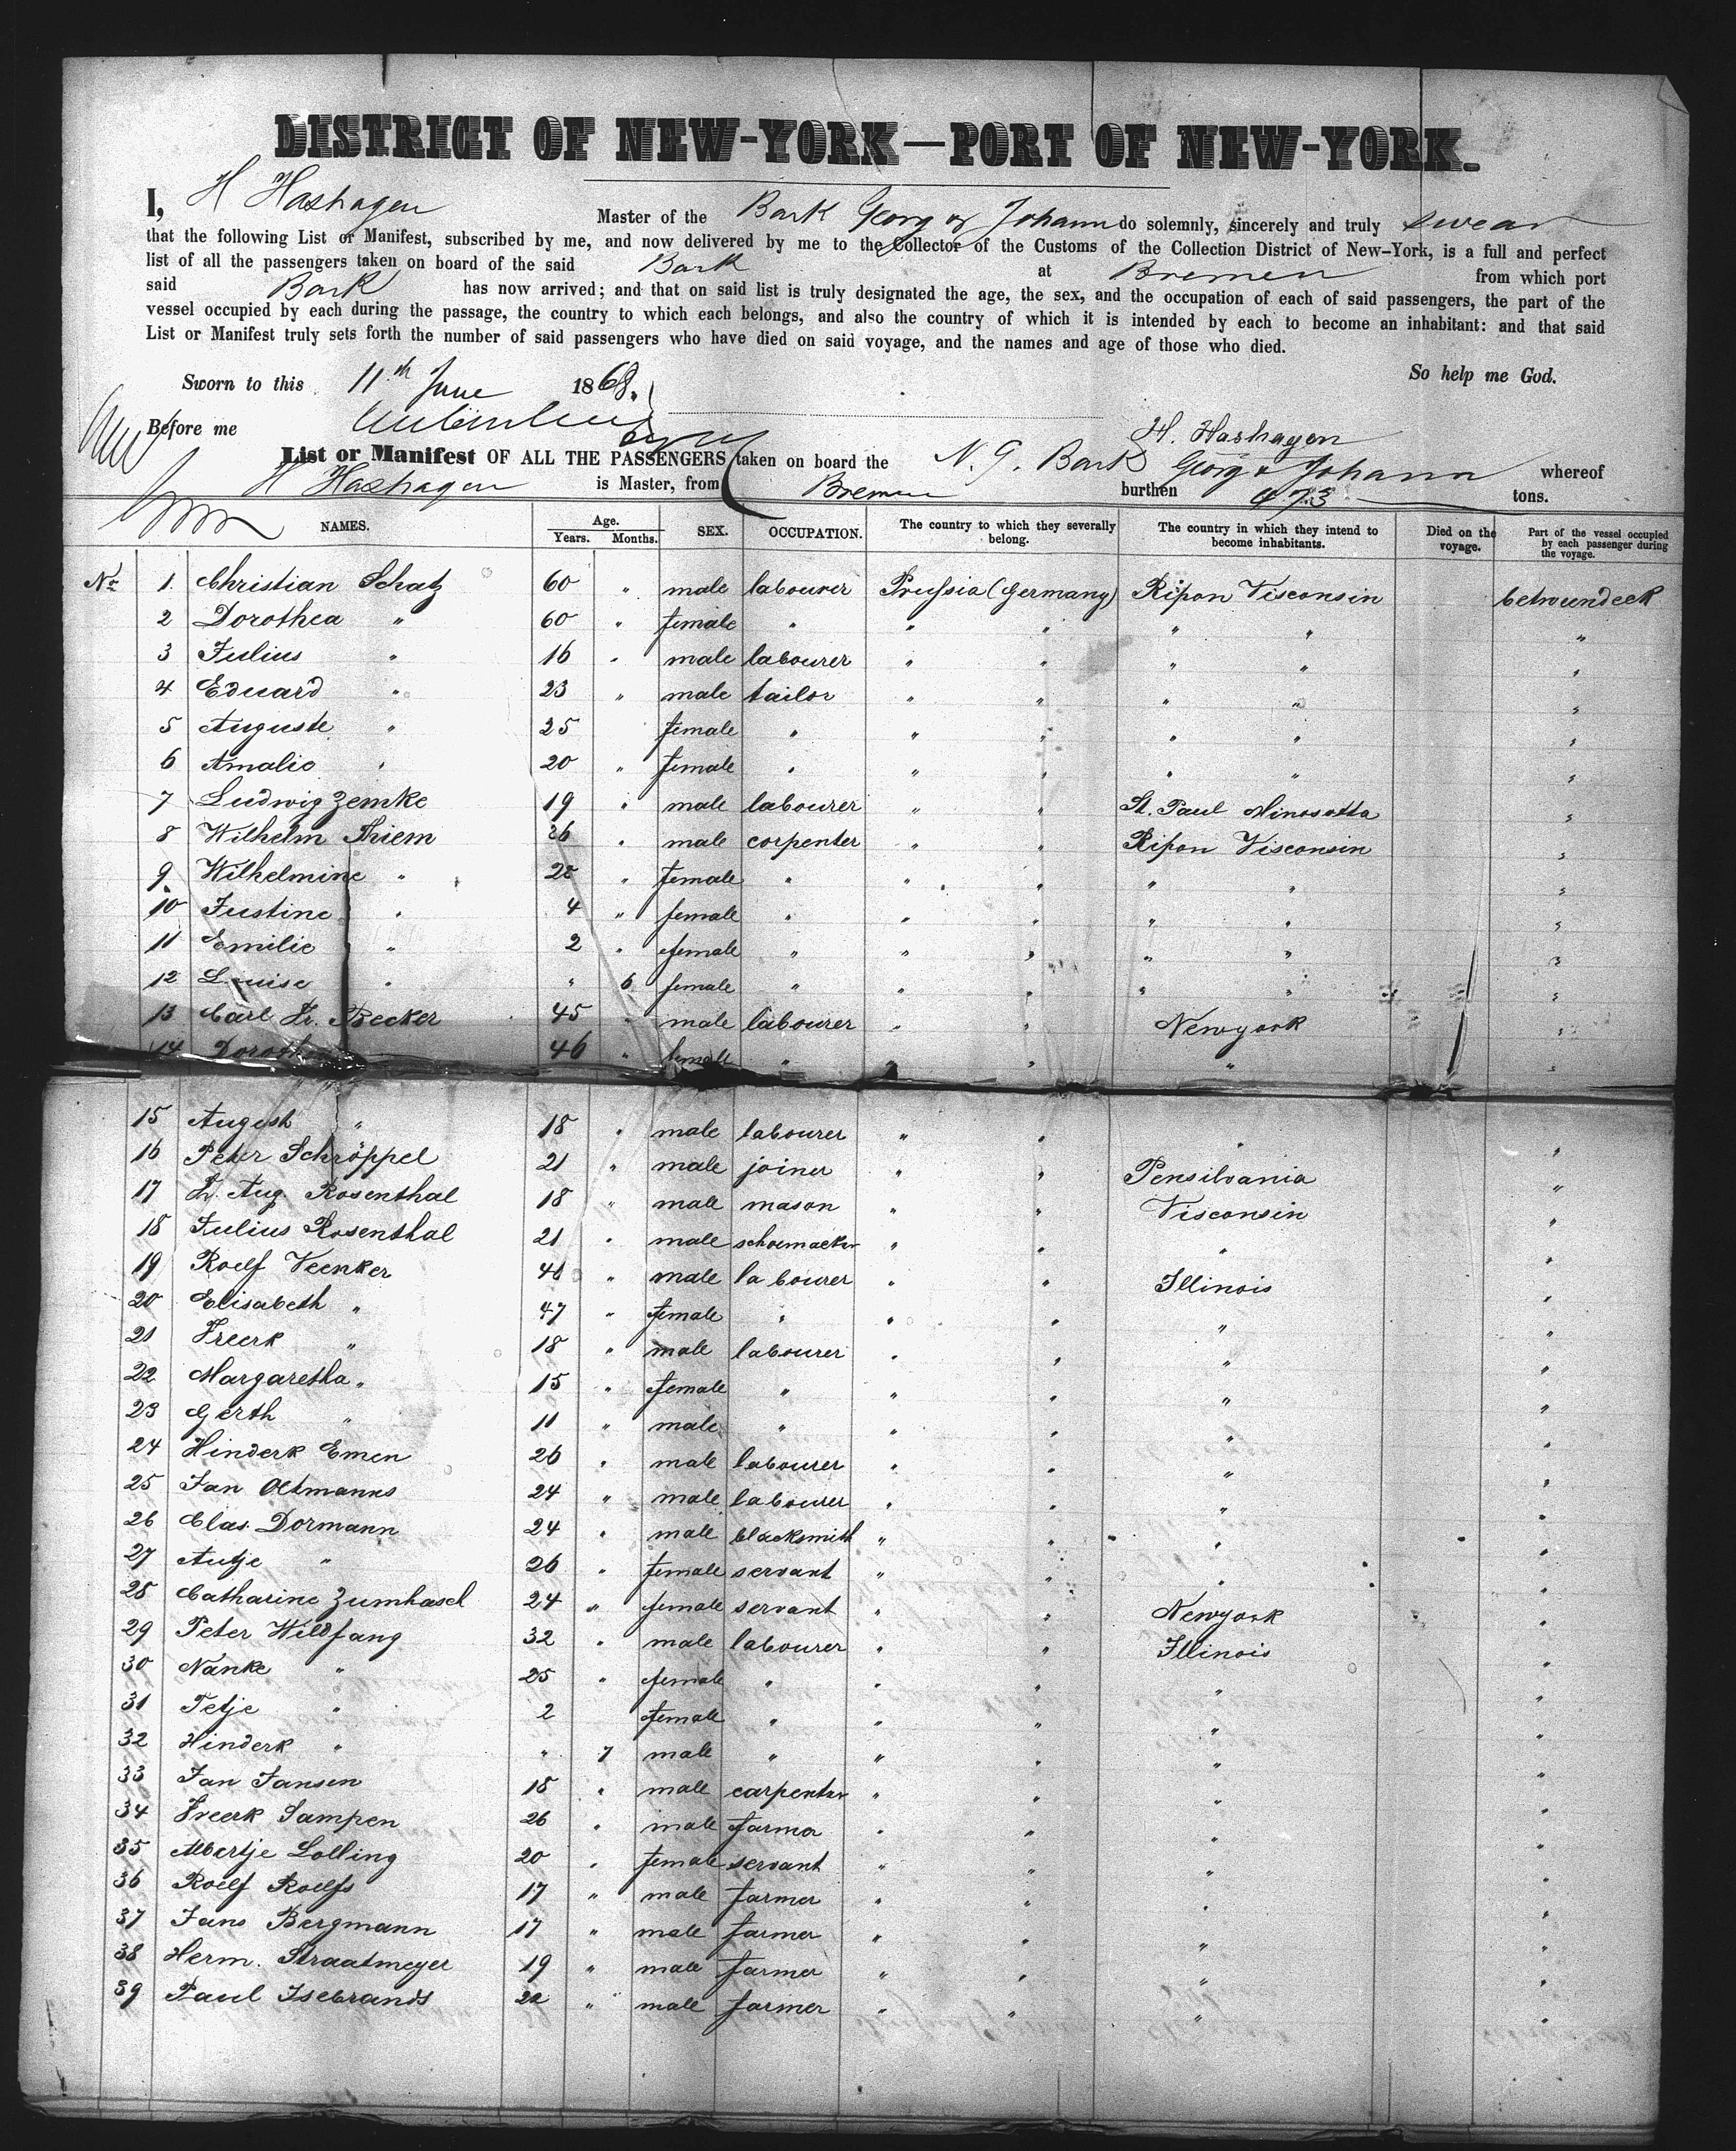 DISTRICT OF NEW-YORK—PORT OF NEW-YORK.
I, H Hashagen Master of the Bark Georg & Johann do solemnly, sincerely and truly swear
that the following List or Manifest, subscribed by me, and now delivered by me to the Collector of the Customs of the Collection District of New-York, is a full and perfect
list of all the passengers taken on board of the said Bark at Bremen from which port
said Bark has now arrived; and that on said list is truly designated the age, the sex, and the occupation of each of said passengers, the part of the
vessel occupied by each during the passage, the country to which each belongs, and also the country of which it is intended by each to become an inhabitant: and that said
List or Manifest truly sets forth the number of said passengers who have died on said voyage, and the names and age of those who died.
So help me God.
Sworn to this 11th June 1868.
Before me
H. Hashagen
List or Manifest OF ALL THE PASSENGERS taken on board the N. G. Bark Georg & Johann whereof
H Hashagen is Master, from Bremen burthen 473 tons.
NAMES. Age. Years. Months. SEX. OCCUPATION. The country to which they severally belong. The country in which they intend to become inhabitants. Died on the voyage. Part of the vessel occupied by each passenger during the voyage.
No 1. Christian Schatz 60 " male labourer Prussia (Germany) Ripon Visconsin betweendeck
2 Dorothea " 60 " female " " " " " "
3 Julius " 16 " male labourer " " " " "
4 Eduard " 23 " male tailor " " " " "
5 Auguste " 25 female " " " " " "
6 Amalie " 20 " female " " " " " "
7 Ludwig Zemke 19 " male labourer " " St. Paul Minosotta "
8 Wilhelm Thiem 26 " male corpenter " " Ripon Visconsin "
9 Wilhelmine " 28 " female " " " " " "
10 Justine " 4 " female " " " " " "
11 Emilie " 2 " female " " " " " "
12 Louise " " 6 female " " " " " "
13 Carl Fr. Becker 45 " male labourer " " Newyork "
14 46 " female " " " " "
15 August " 18 " male labourer " " " "
16 Peter Schröppel 21 " male joiner " " Pensilvania "
17 Fr. Aug. Rosenthal 18 " male mason " " Visconsin "
18 Julius Rosenthal 21 " male schoemacker " " " "
19 Roelf Veenker 48 " male labourer " " Illinois "
20 Elisabeth " 47 " female " " " " "
21 Freerk " 18 " male labourer " " " "
22 Margaretha " 15 " female " " " " "
23 Gerth " 11 " male " " " " "
24 Hinderk Emen 26 " male labourer " " " "
25 Jan Oltmanns 24 " male labourer " " " "
26 Clas Dormann 24 " male blacksmith " " " "
27 Antje " 26 " female servant " " " "
28 Catharine Zumhasch 24 " female servant " " Newyork "
29 Peter Wildfang 32 " male labourer " " Illinois "
30 Nanke " 25 " female " " " " "
31 Tetje " 2 female " " " " "
32 Hinderk " " 7 male " " " " "
33 Jan Jansen 18 " male carpenter " " " "
34 Freerk Sampen 26 " male farmer " " " "
35 Albertje Lolling 20 " female servant " " " "
36 Roelf Roelfs 17 " male farmer " " " "
37 Jans Bergmann 17 " male farmer " " " "
38 Herm. Straatmeyer 19 " male farmer " " " "
39 Paul Isebrands 22 " male farmer " " " "